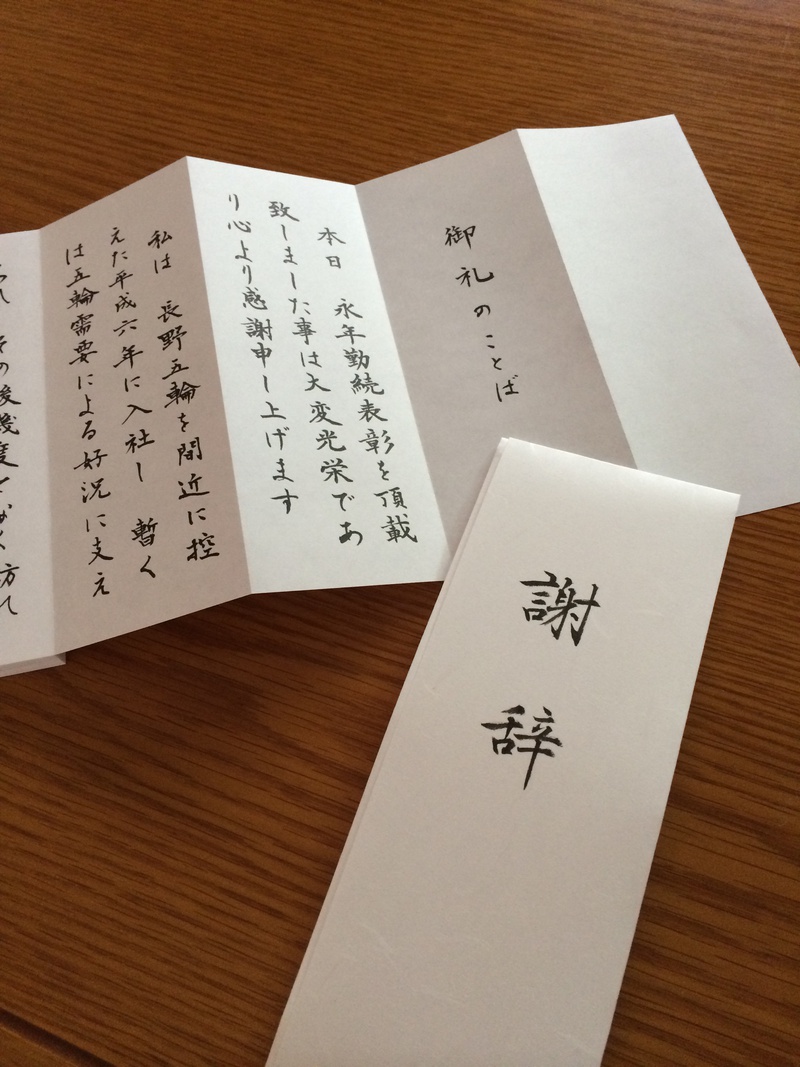 御礼のことば
本日 永年勤続表彰を頂載
致しました事は大変光栄であ
り心より感謝申し上げます
私は 長野五輪を間近に控
えた平成六年に入社し 暫く
は五輪需要による好況に支え
その後幾度
謝辞